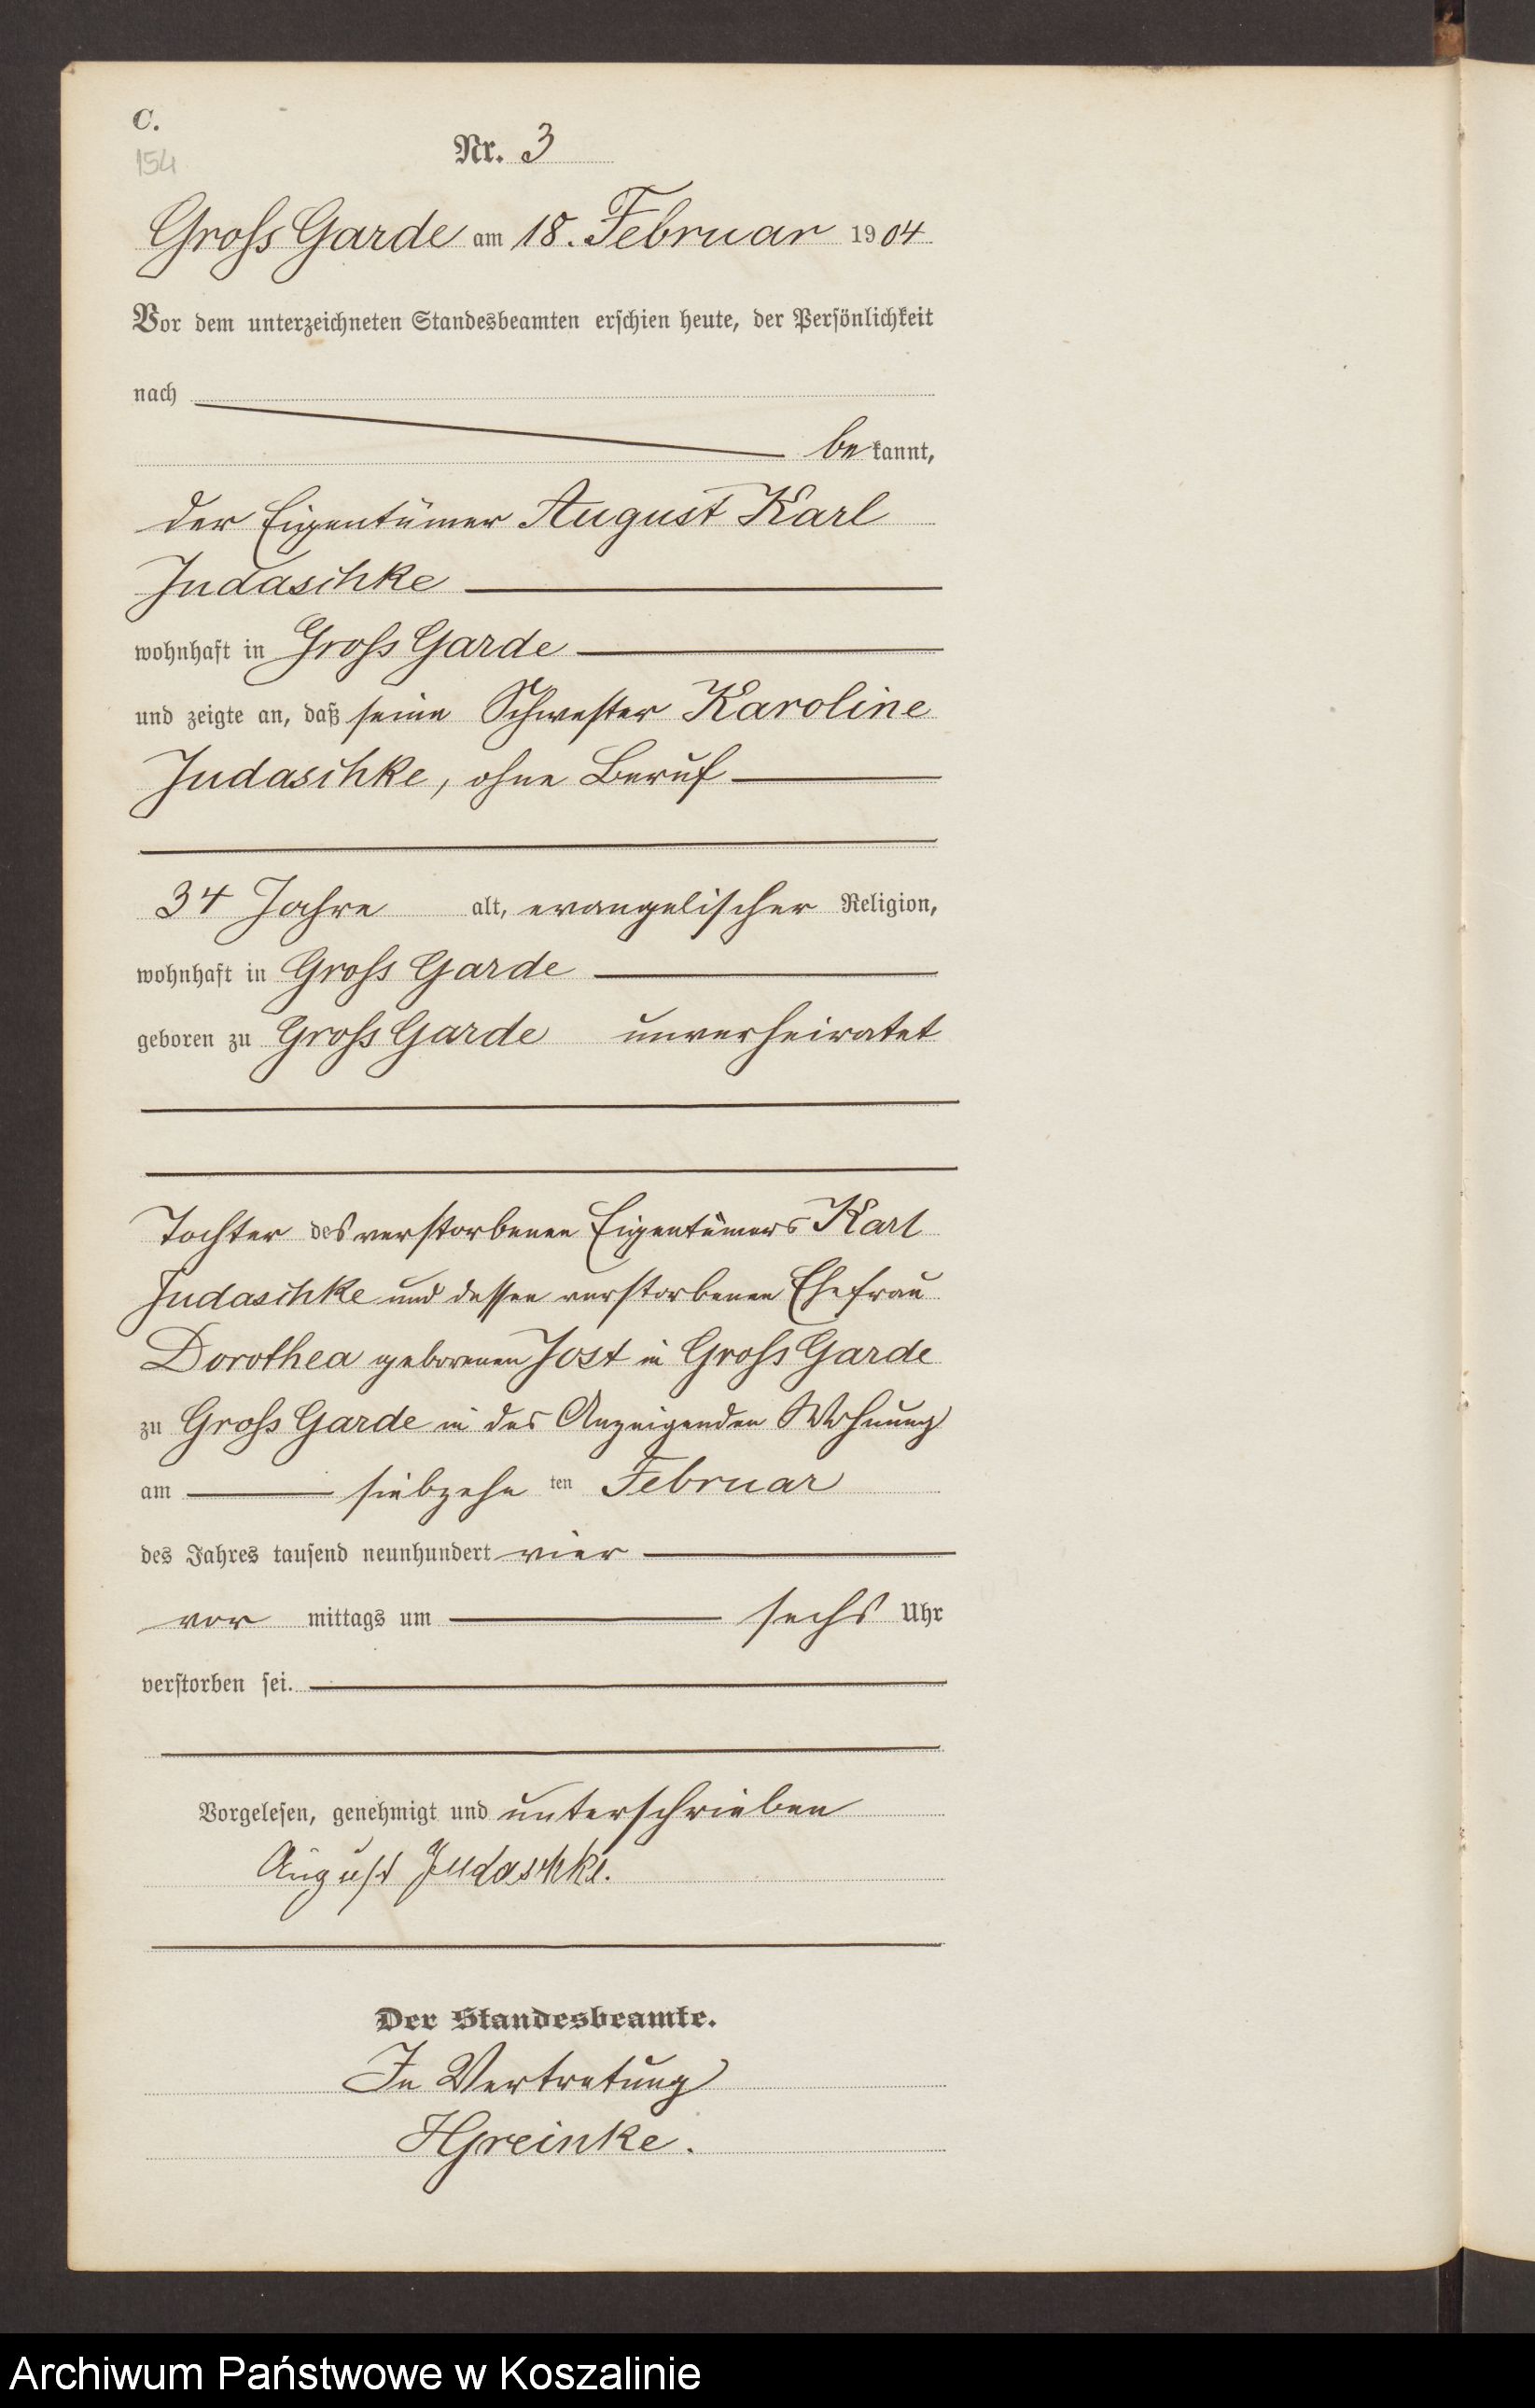 C.
154
Nr. 3
Gross Garde am 18. Februar 1904
Vor dem unterzeichneten Standesbeamten erschien heute, der Persönlichkeit
nach
bekannt,
der Eigentümer August Karl
Judaschke
wohnhaft in Gross Garde
und zeigte an, daß seine Schwester Karoline
Judaschke, ohne Beruf
34 Jahre alt, evangelischer Religion,
wohnhaft in Gross Garde
geboren zu Gross Garde unverheiratet
Tochter des verstorbenen Eigentümers Karl
Judaschke und dessen verstorbenen Ehefrau
Dorothea geborenen Jost in Gross Garde
zu Gross Garde in des Anzeigenden Wohnung
am siebzehnten Februar
des Jahres tausend neunhundert vier
vormittags um sechs Uhr
verstorben sei.
Vorgelesen, genehmigt und unterschrieben
August Judaschke.
Der Standesbeamte.
In Vertretung
HGreinke.
Archiwum Państwowe w Koszalinie